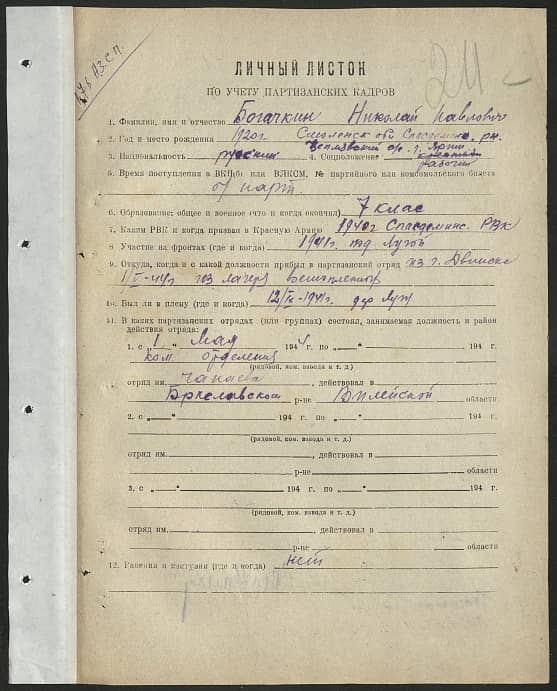 ЛИЧНЫЙ ЛИСТОК
ПО УЧЕТУ ПАРТИЗАНСКИХ КАДРОВ
1. Фамилия, имя и отчество Богачкин Николай Павлович
2. Год и место рождения 1920 г. Смоленск. обл Спасдеменс. рн.
3. Национальность русский 4. Соцположение рабочий
5. Время поступления в ВКП(б) или ВЛКСМ, № партийного или комсомольского билета
б/парт.
6. Образование: общее и военное (что и когда окончил) 7 клас
7. Каким РВК и когда призван в Красную Армию 1940 г Спасдеменс. РВК
8. Участие на фронтах (где и когда) 1941 г. под Лугой
9. Откуда, когда и с какой должности прибыл в партизанский отряд из г. Двинска
1/V-44 г из лагеря военнопленных
10. Был ли в плену (где и когда) 12/IX-1941 г.
11. В каких партизанских отрядах (или группах) состоял, занимаемая должность и район
действия отряда:
1. с „1“ Мая 1944 г. по „ “ 194 г.
ком. отделения
(рядовой, ком. взвода и т. д.)
отряд им. Чапаева, действовал в
Браславском р-не Вилейской области
2. с „ “ 194 г. по „ “ 194 г.
(рядовой, ком. взвода и т. д.)
отряд им. , действовал в
р-не области
3. с „ “ 194 г. по „ “ 194 г.
(рядовой, ком. взвода и т. д.)
отряд им. действовал в
р-не области
12. Ранения и контузии (где и когда) нет